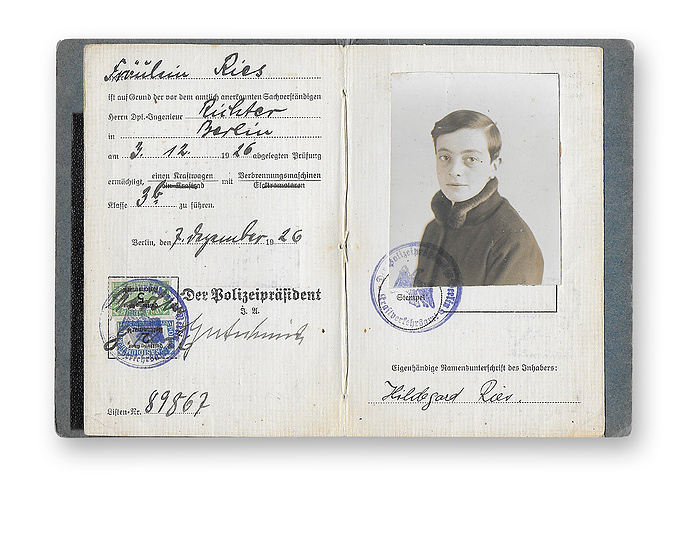 Fräulein Ries
ist auf Grund der vor dem amtlich anerkannten Sachverständigen
Herrn Dpl.-Ingenieur Richter
in Berlin
am 3. 12. 1926 abgelegten Prüfung
ermächtigt, einen Kraftwagen mit Verbrennungsmaschinen
ein Kraftrad Elektromotoren
Klasse 3b zu führen.
Berlin, den 7. Dezember 1926
Der Polizeipräsident
J. A.
Listen-Nr. 89867
Stempel
Kraftverkehrsamt
Eigenhändige Namensunterschrift des Inhabers:
Hildegard Ries.